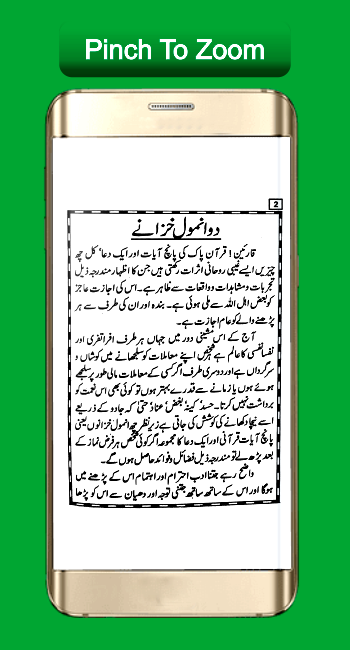 Pinch To Zoom
2
دو انمول خزانے
قارئین! قرآن پاک کی پانچ آیات اور ایک دعا، کل چھ
چیزیں ایسے غیبی روحانی اثرات رکھتی ہیں جن کا اظہار مندرجہ ذیل
تجربات و مشاہدات و واقعات سے ظاہر ہے۔ اس کی اجازت عاجز
کو بعض اہل اللہ سے ملی ہوئی ہے۔ بندہ اور ان کی طرف سے ہر
پڑھنے والے کو عام اجازت ہے۔
آج کے اس مشینی دور میں جہاں ہر طرف افراتفری اور
نفسانفسی کا عالم ہے ہر شخص اپنے معاملات کو سلجھانے میں کوشاں و
سرگرداں ہے اور دوسری طرف اگر کسی کے معاملات مالی طور پر سلجھے
ہوئے ہوں یا زمانے سے قدرے بہتر ہوں تو کوئی بھی اس نعمت کو
برداشت نہیں کرتا۔ حسد، کینہ، بغض، عناد حتیٰ کہ جادو کے ذریعے
اسے نیچا دکھانے کی کوشش کی جاتی ہے زیر نظر چھ انمول خزانوں یعنی
پانچ آیات قرآنی اور ایک دعا کا مجموعہ اگر کوئی شخص ہر فرض نماز کے
بعد پڑھ لے تو مندرجہ ذیل فضائل و فوائد حاصل ہوں گے۔
واضح رہے جتنا ادب احترام اور اہتمام اس کے پڑھنے میں
ہوگا اور اس کے ساتھ ساتھ جتنی توجہ اور دھیان سے اس کو پڑھا